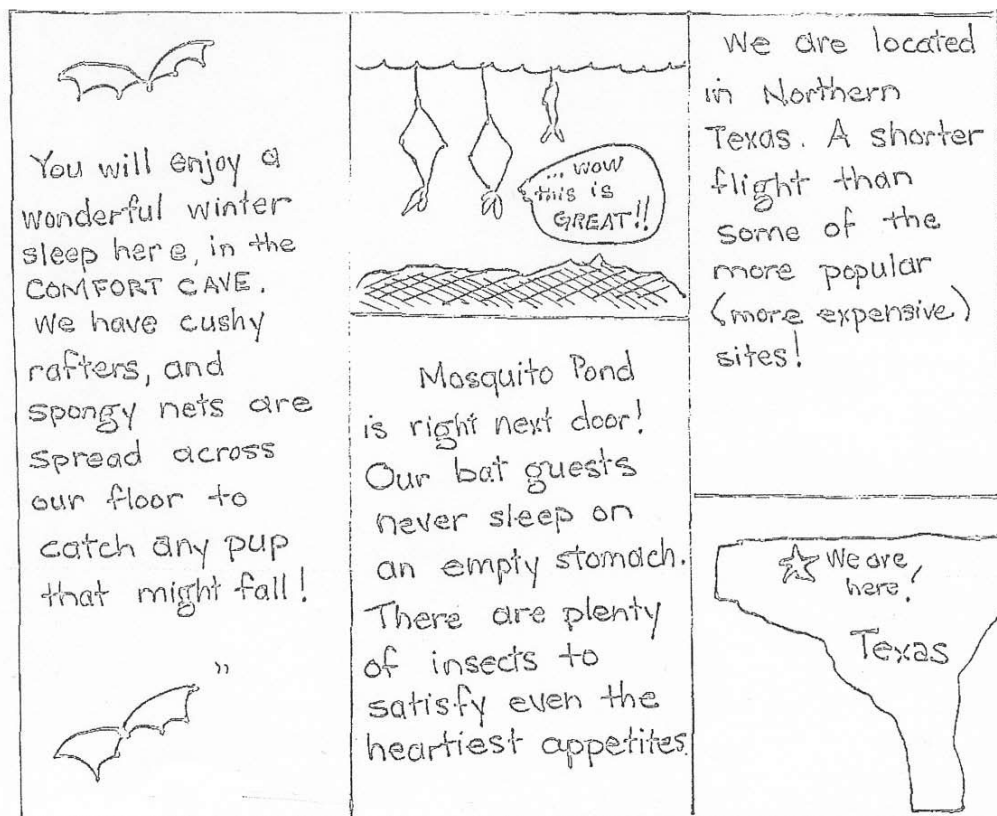 You will enjoy a
wonderful winter
sleep here, in the
COMFORT CAVE.
We have cushy
rafters, and
spongy nets are
spread across
our floor to
catch any pup
that might fall!
"
... wow
this is
GREAT!!
Mosquito Pond
is right next door!
Our bat guests
never sleep on
an empty stomach.
There are plenty
of insects to
satisfy even the
heartiest appetites.
We are located
in Northern
Texas. A shorter
flight than
some of the
more popular
(more expensive)
sites!
We are
here!
Texas